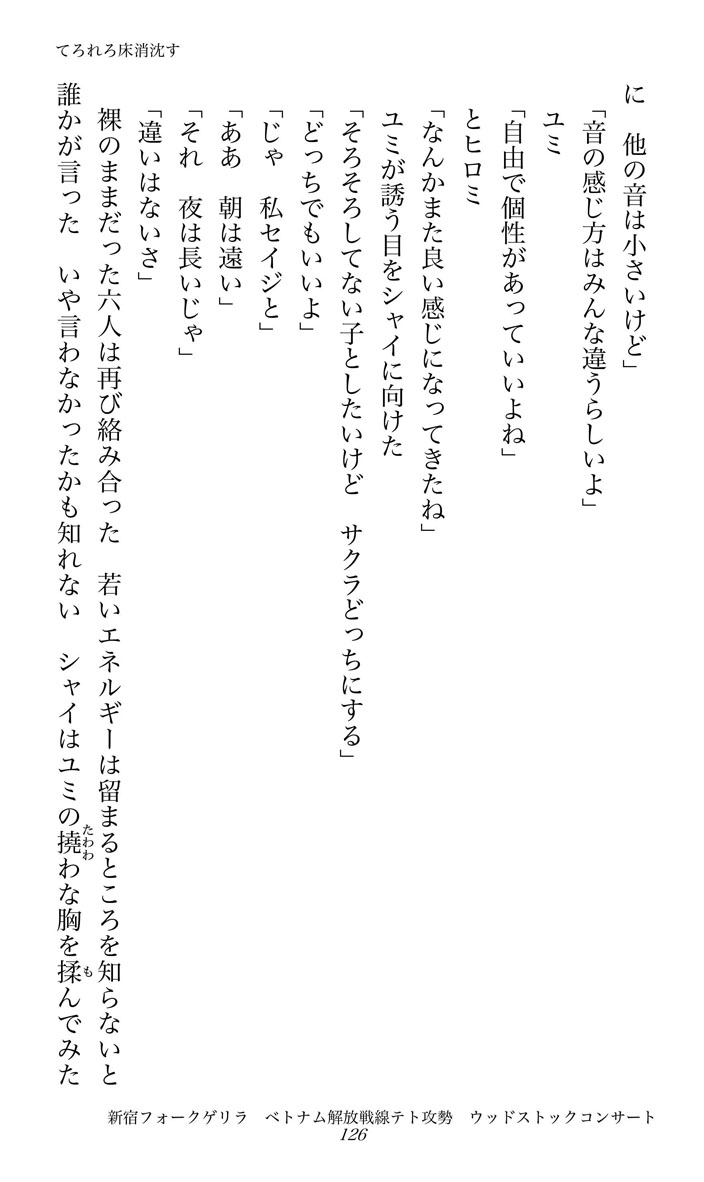 てろれろ床消沈す
に　他の音は小さいけど」
「音の感じ方はみんな違うらしいよ」
ユミ
「自由で個性があっていいよね」
とヒロミ
「なんかまた良い感じになってきたね」
ユミが誘う目をシャイに向けた
「そろそろしてない子としたいけど　サクラどっちにする」
「どっちでもいいよ」
「じゃ　私セイジと」
「ああ　朝は遠い」
「それ　夜は長いじゃ」
「違いはないさ」
裸のままだった六人は再び絡み合った　若いエネルギーは留まるところを知らないと
誰かが言った　いや言わなかったかも知れない　シャイはユミの撓わな胸を揉んでみた
たわわ
も
新宿フォークゲリラ　ベトナム解放戦線テト攻勢　ウッドストックコンサート
126